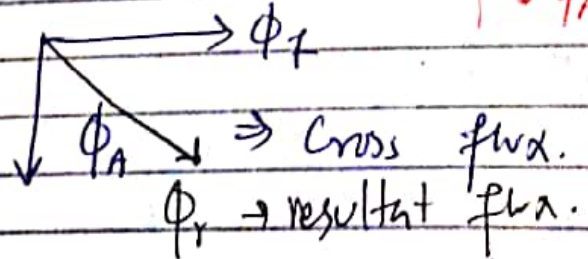 ϕf
ϕA ⇒ Cross flux.
ϕr → resultat flux.